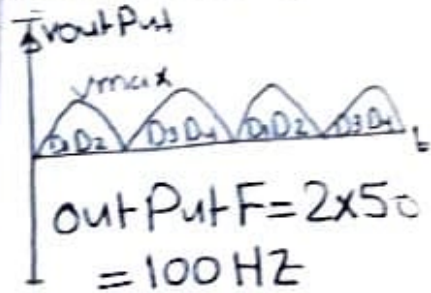 Voutput
Vmax
D1D2 D3D4 D1D2 D3D4
t
outPut F=2x50
=100HZ